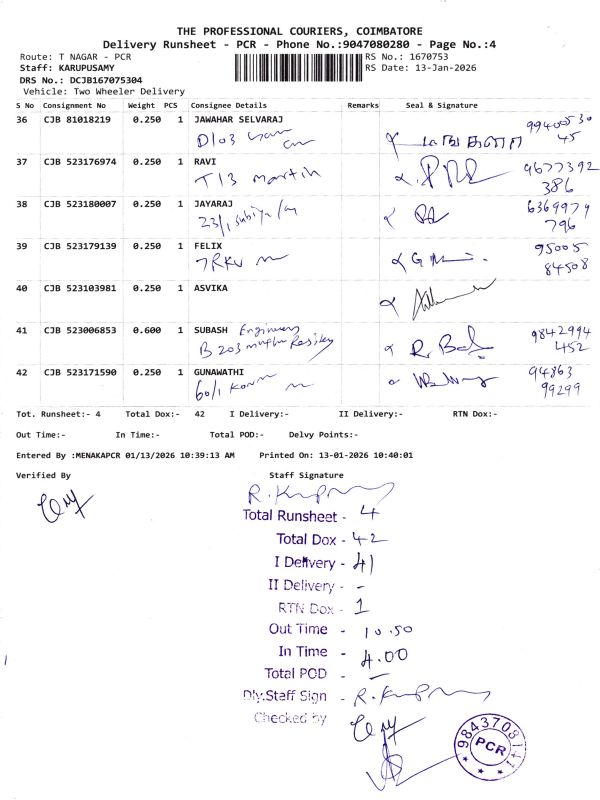 THE PROFESSIONAL COURIERS, COIMBATORE
Delivery Runsheet - PCR - Phone No.:9047080280 - Page No.:4
Route: T NAGAR - PCR RS No.: 1670753
Staff: KARUPUSAMY RS Date: 13-Jan-2026
DRS No.: DCJB167075304
Vehicle: Two Wheeler Delivery
S No Consignment No Weight PCS Consignee Details Remarks Seal & Signature
36 CJB 81018219 0.250 1 JAWAHAR SELVARAJ 99400530
D103 45
37 CJB 523176974 0.250 1 RAVI 9677392
T13 Martin 386
38 CJB 523180007 0.250 1 JAYARAJ 6369979
23/1 796
39 CJB 523179139 0.250 1 FELIX 95005
7 RKV 84508
40 CJB 523103981 0.250 1 ASVIKA
41 CJB 523006853 0.600 1 SUBASH 9842994
B 203 R. 452
42 CJB 523171590 0.250 1 GUNAWATHI 94863
60/1 99299
Tot. Runsheet:- 4 Total Dox:- 42 I Delivery:- II Delivery:- RTN Dox:-
Out Time:- In Time:- Total POD:- Delvy Points:-
Entered By :MENAKAPCR 01/13/2026 10:39:13 AM Printed On: 13-01-2026 10:40:01
Verified By Staff Signature
Total Runsheet - 4
Total Dox - 42
I Delivery - 41
II Delivery - -
RTN Dox - 1
Out Time - 10.50
In Time - 4.00
Total POD - -
Dly.Staff Sign -
Checked by
PCR